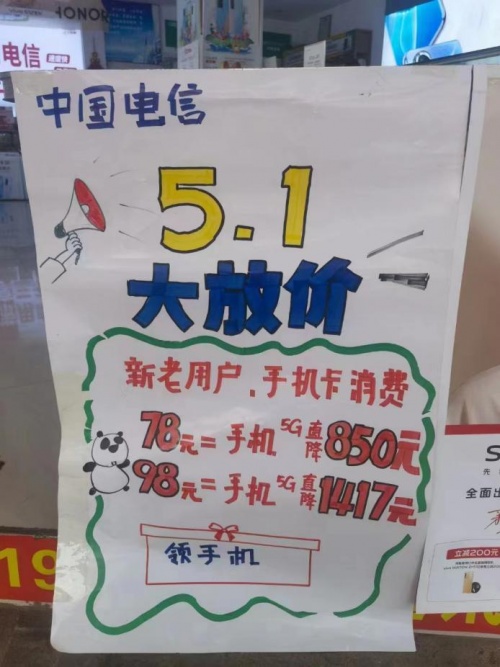 HONOR
电信
中国电信
5.1
大放价
新老用户、手机卡消费
78元=手机5G直降850元
98元=手机5G直降1417元
领手机
全面出
立减200元
19